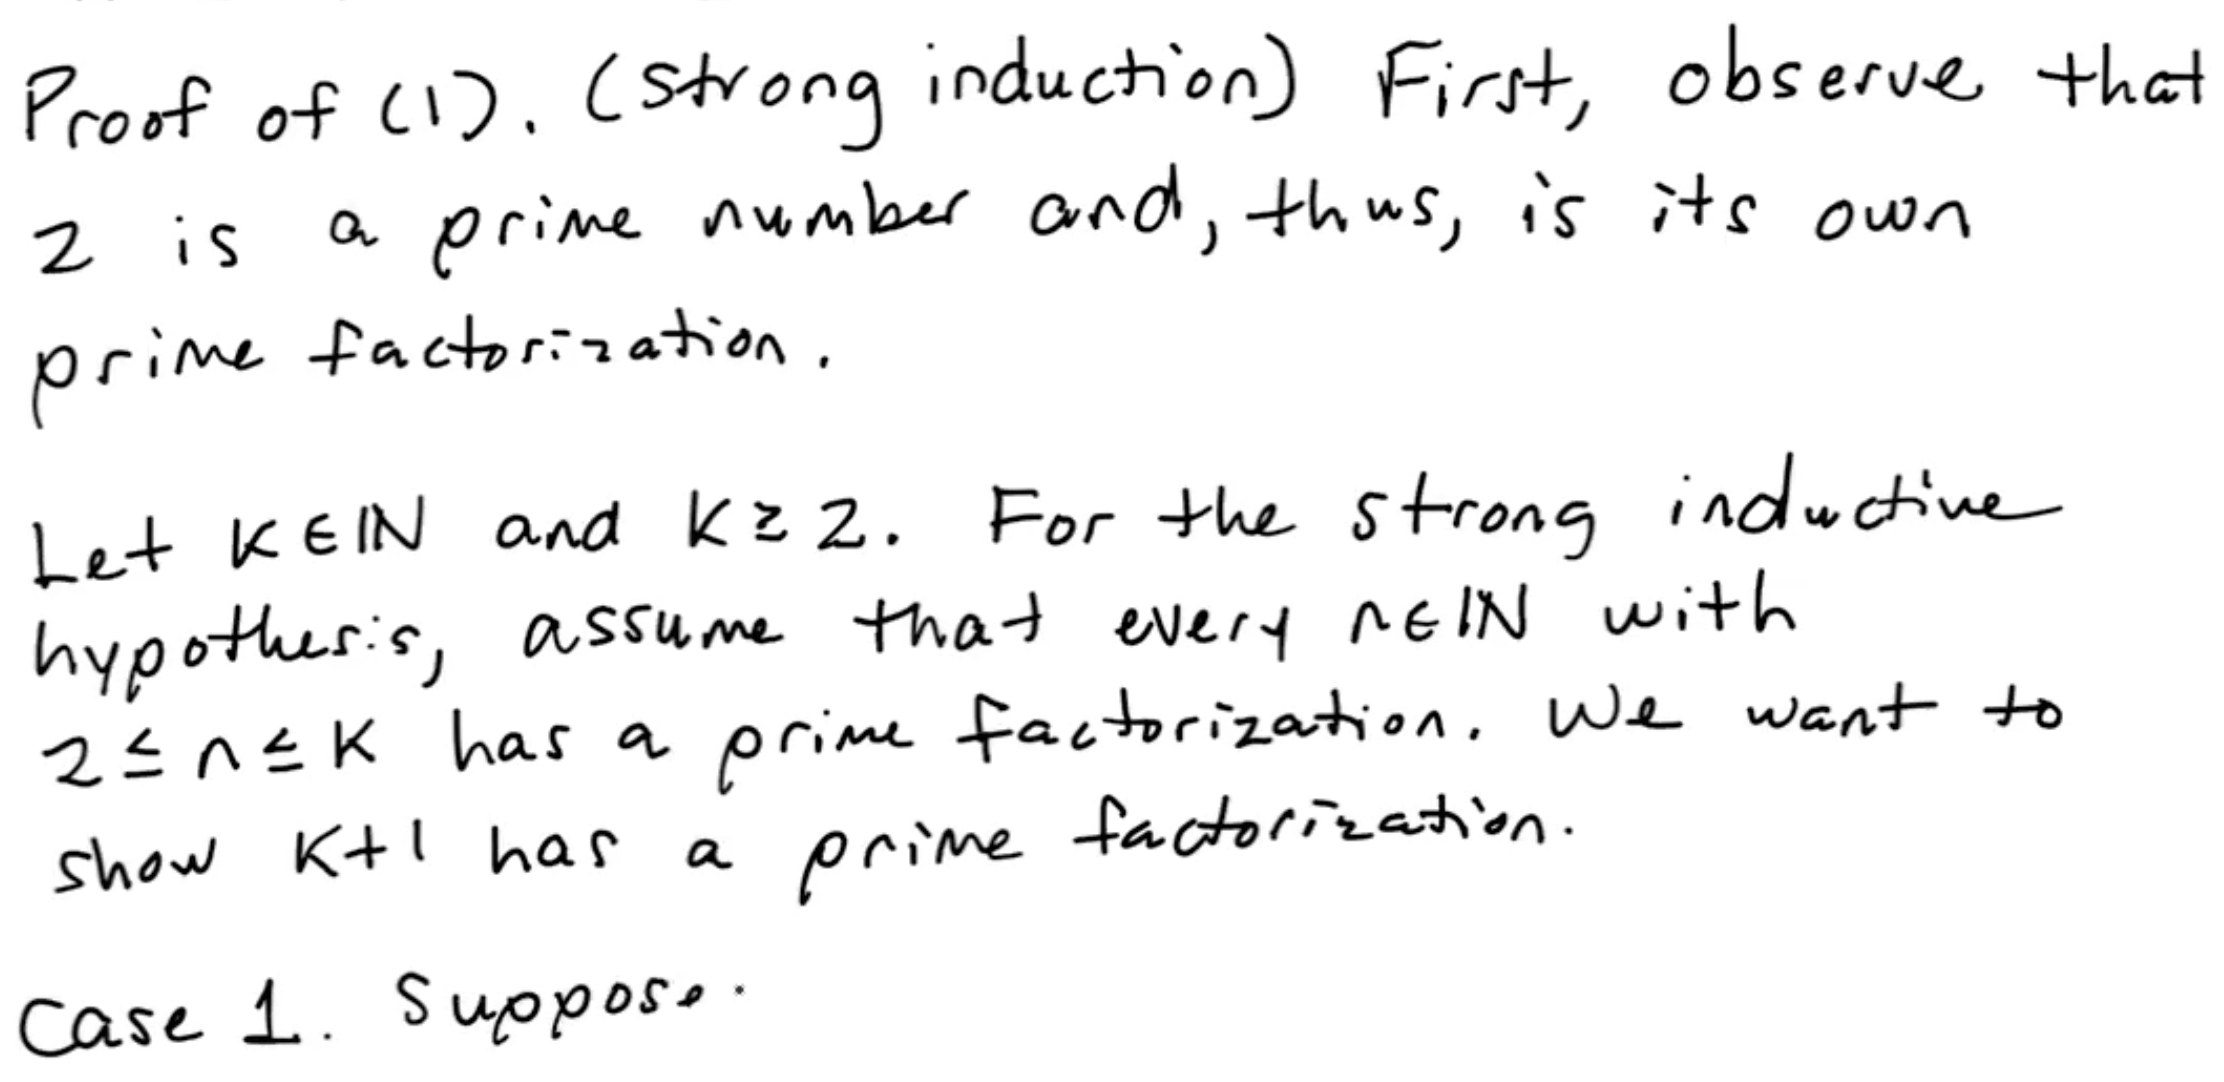 Proof of (1). (strong induction) First, observe that
2 is a prime number and, thus, is its own
prime factorization.
Let K ∈ ℕ and K ≥ 2. For the strong inductive
hypothesis, assume that every n ∈ ℕ with
2 ≤ n ≤ K has a prime factorization. We want to
show K+1 has a prime factorization.
Case 1. Suppose